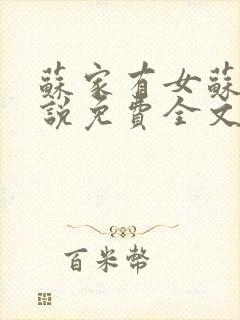 蘇家有女蘇
說免費全文
百米幣